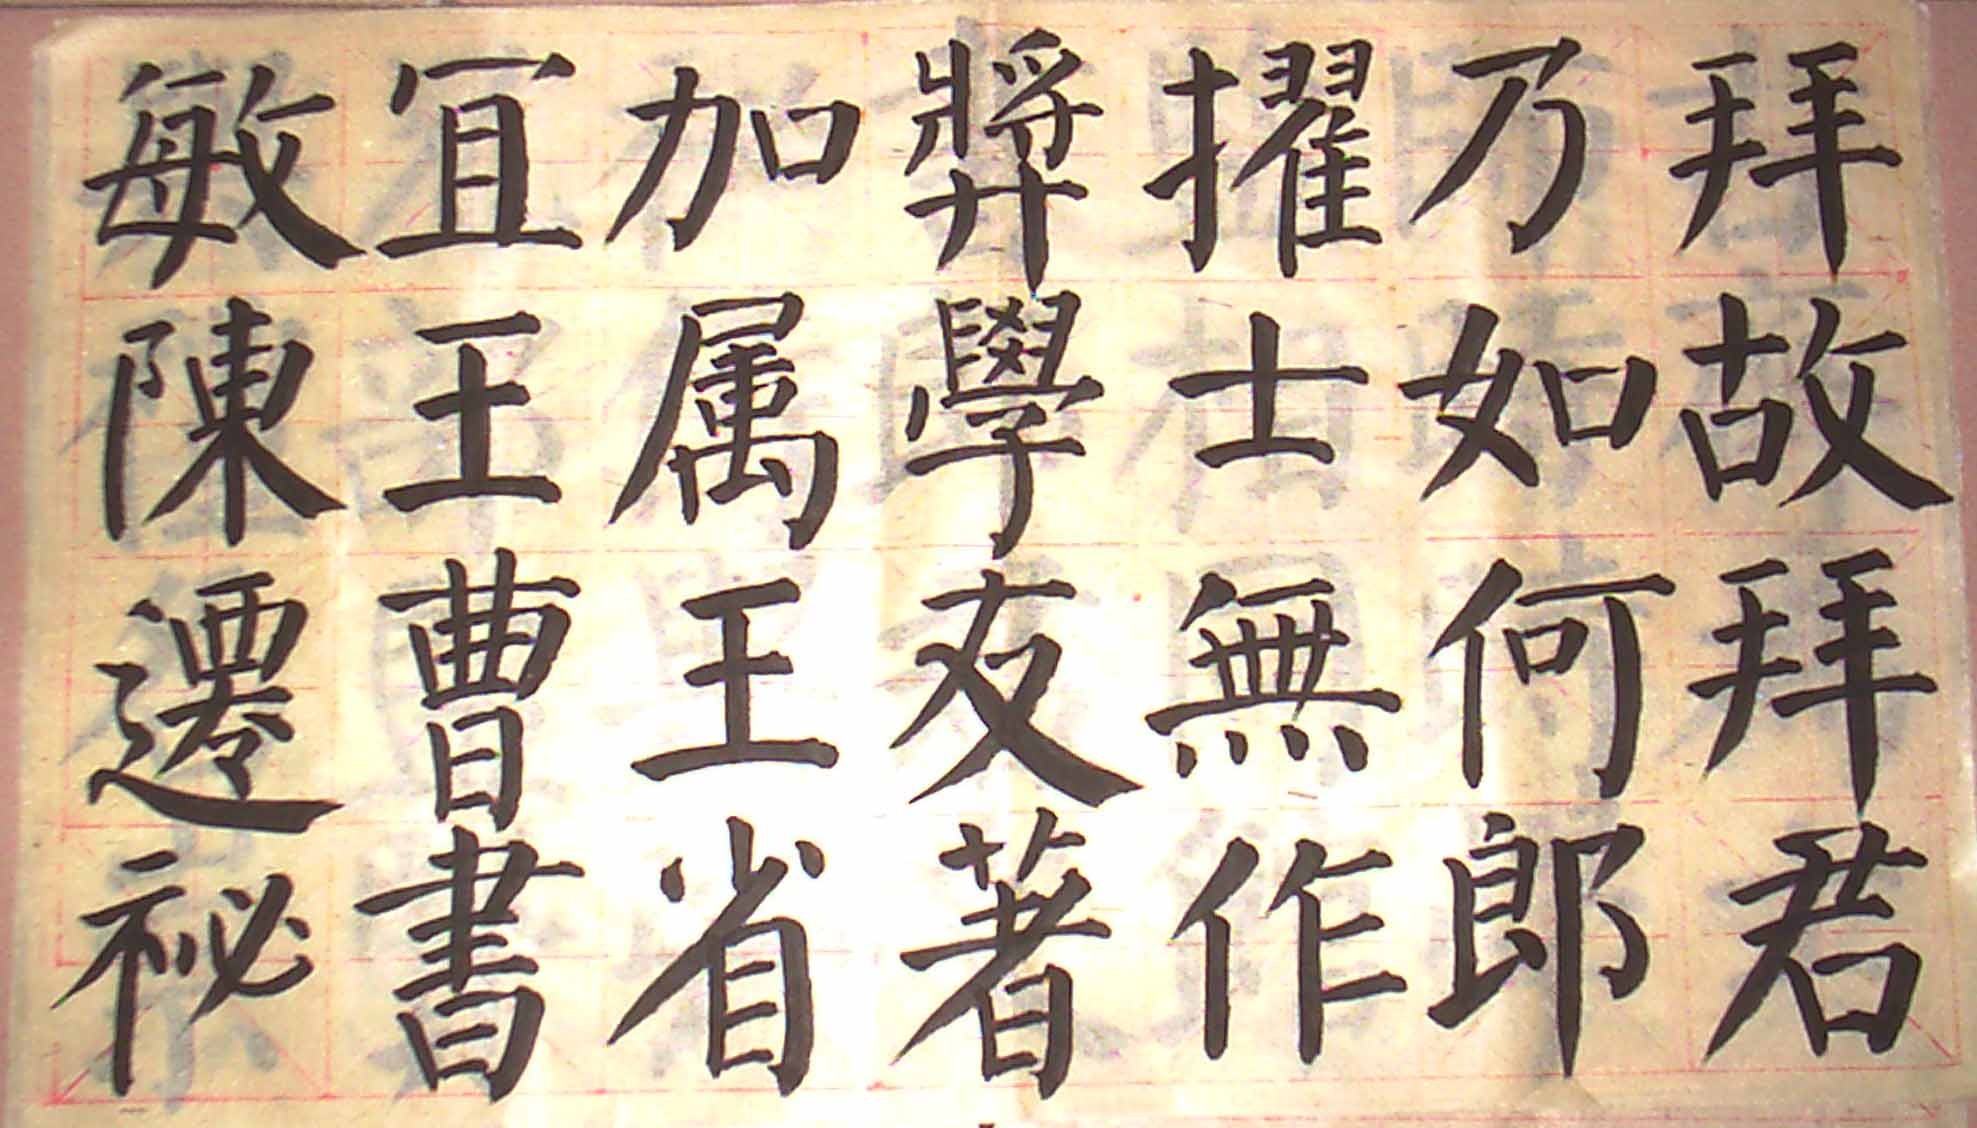 拜故拜君
乃如何郎
擢士無作
奬學友著
加属王省
冝王曹書
敏陳遷祕